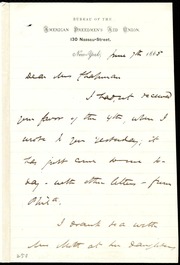 BUREAU OF THE
AMERICAN FREEDMEN'S AID UNION.
130 NASSAU-STREET.
New-York, June 7th 1865
Dear Mrs Chapman
I had not received
your favor of the 4th, when I
wrote to you yesterday, it
has just come to me
day - with other letters - from
Phila
I drank tea with
Mrs at her daughter's